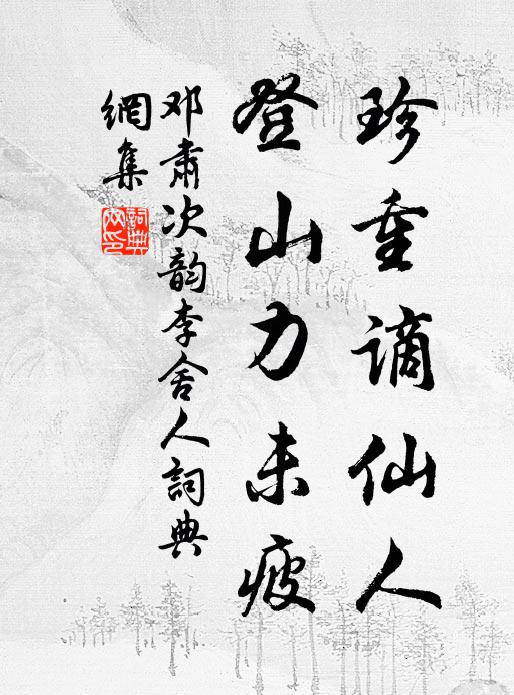 珍重谪仙人
登山力未疲
邓肃次韵李舍人詞典
網集
詞典
网印